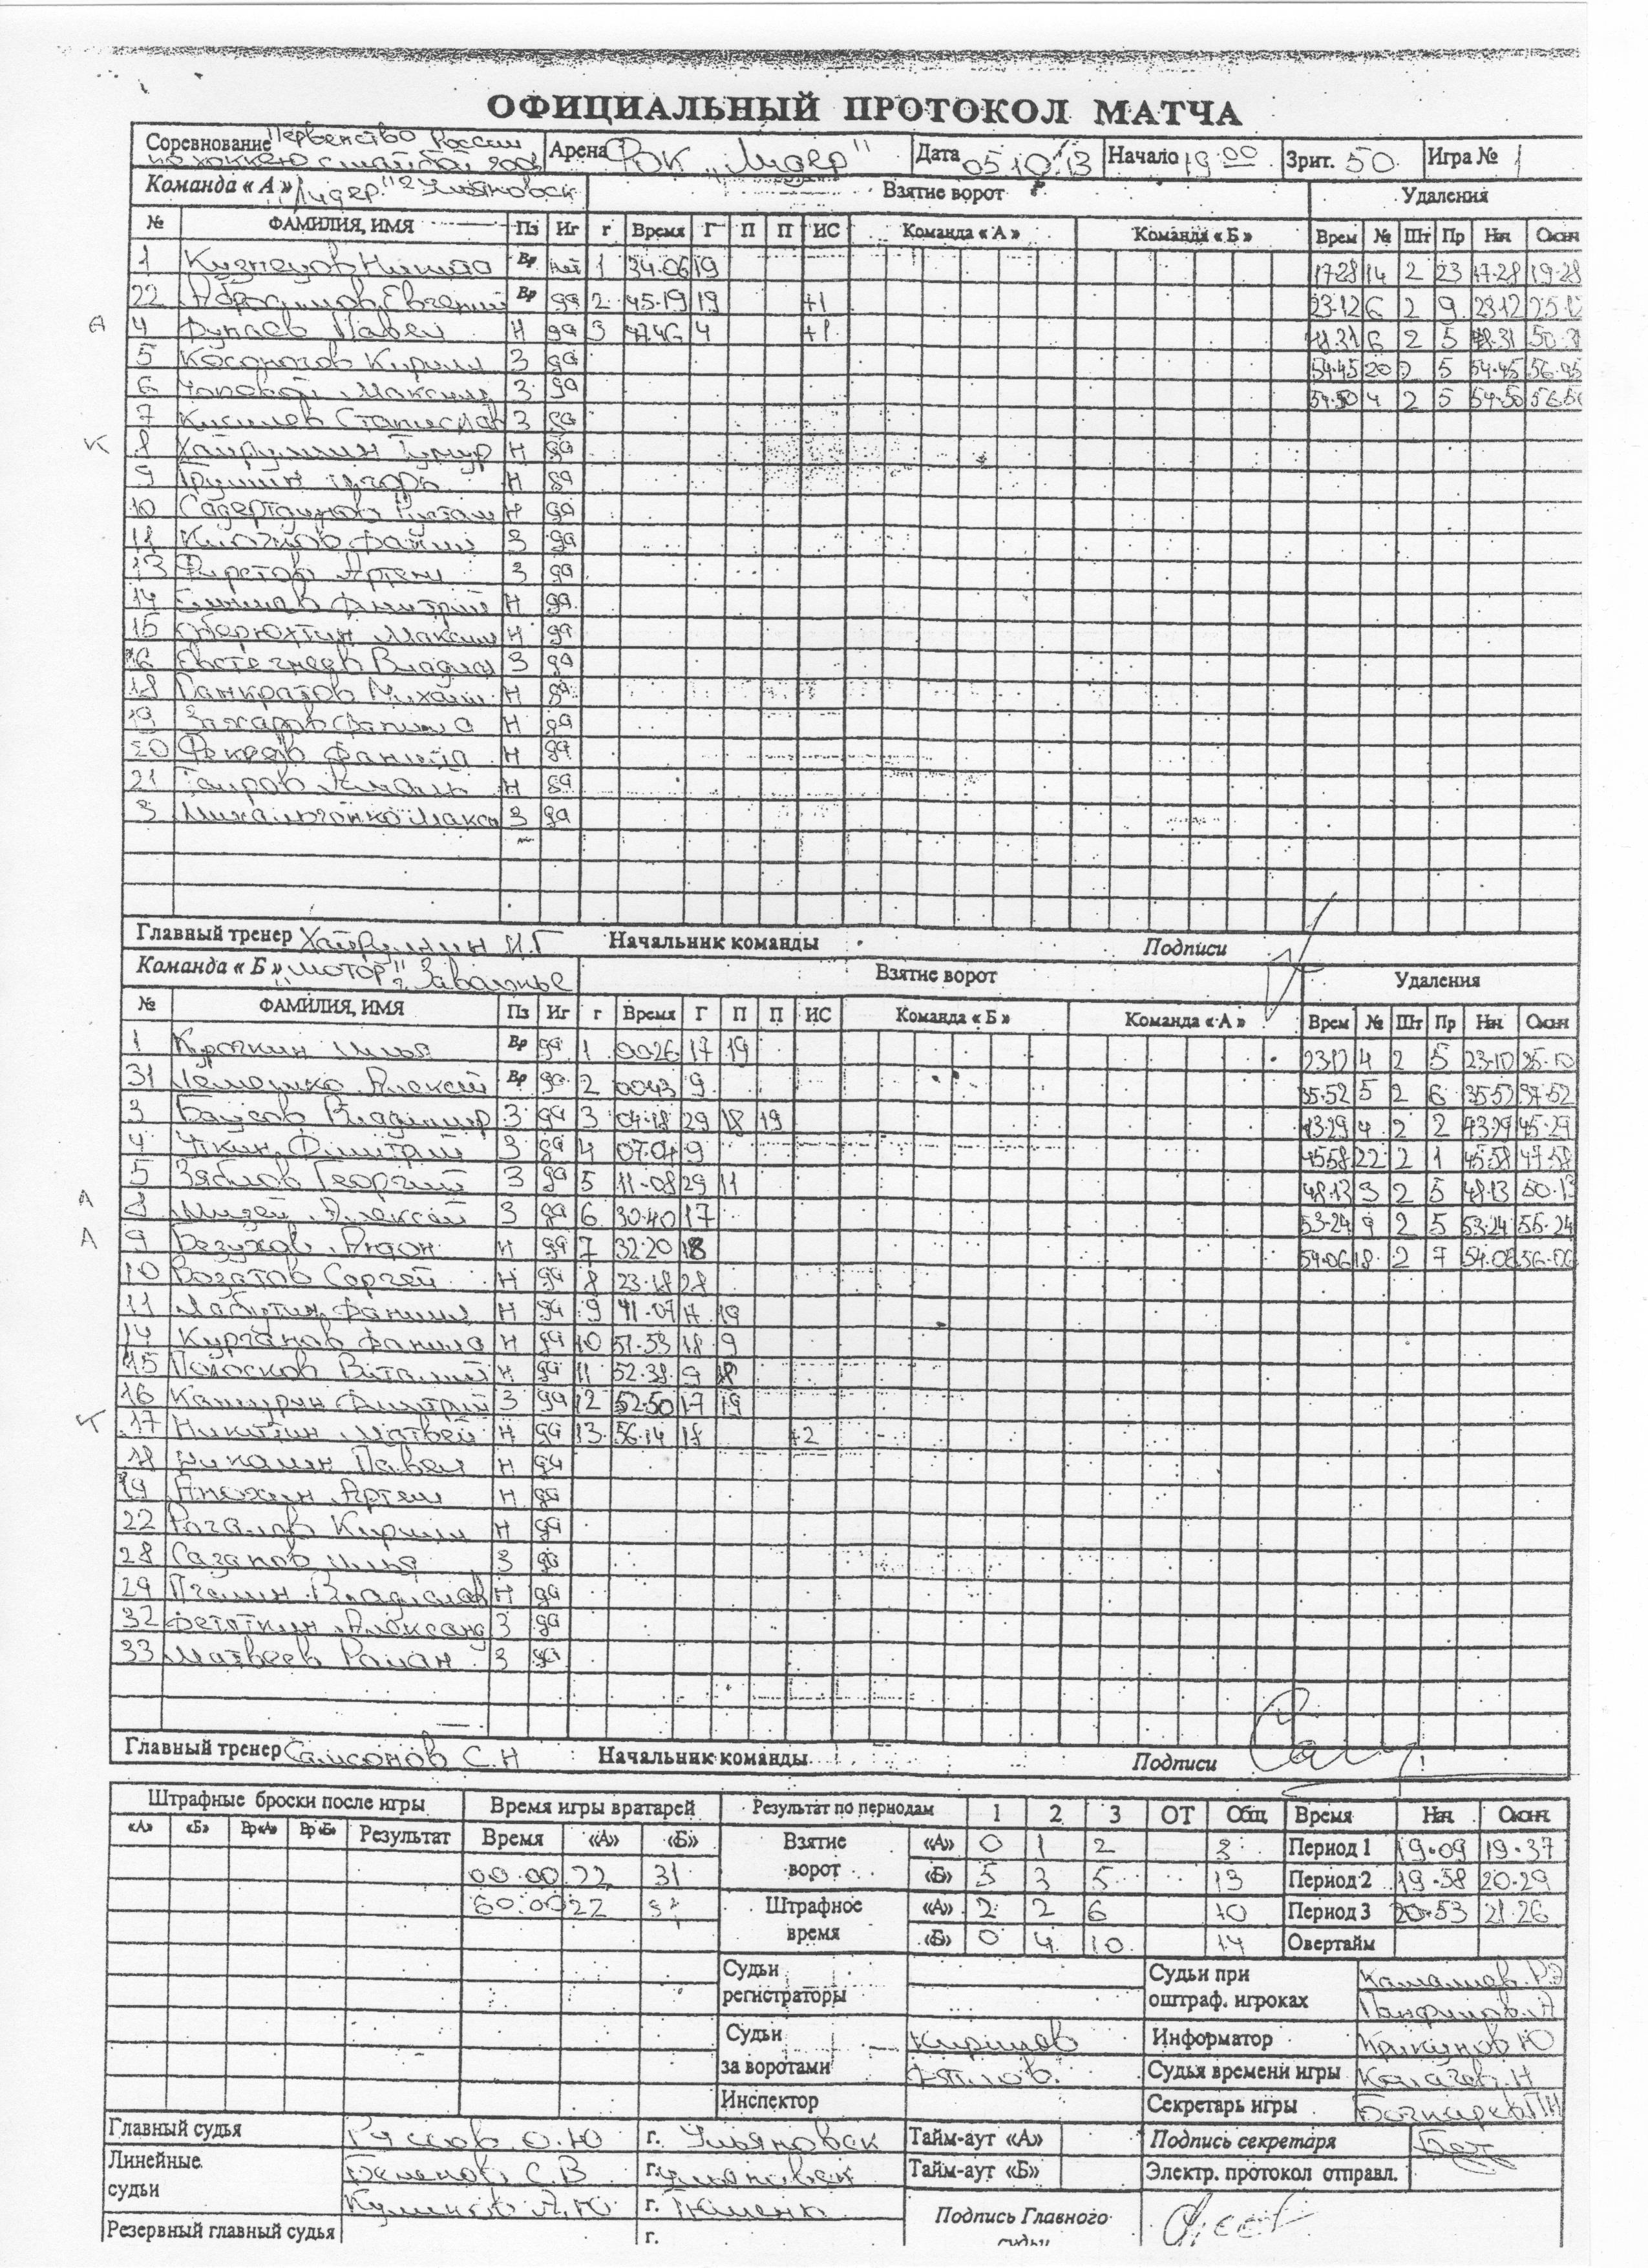 ОФИЦИАЛЬНЫЙ ПРОТОКОЛ МАТЧА
Соревнование "Первенство России Арена ФОК "Лидер" Дата 05.10.13 Начало 19 00 Зрит. 50 Игра № 1
по хоккею с шайбой
Команда « А » "Лидер" г. Ульяновск Взятие ворот Удаления
№ ФАМИЛИЯ, ИМЯ Пз Иг г Время Г П П ИС Команда « А » Команда « Б » Врем № Шт Пр Нач Оконч
1 Кузнецов Никита Вр нет 1 34.06 19 17.28 14 2 23 17.28 19.28
22 Абросимов Евгений Вр да 2 45.19 19 +1 23.12 6 2 9 23.12 25.12
А 4 Павел Н да 3 47.46 4 +1 48.31 6 2 5 48.31 50.31
5 Кирилл З да 54.45 20 2 5 54.45 56.45
6 Максим З да 54.50 4 2 5 54.50 56.50
7 Киселев Станислав З да
К 8 Хайруллин Тимур Н да
9 Грушин Игорь Н да
10 Н да
11 Клочков Данил З да
13 Фирстов Артем З да
14 Дмитрий Н да
15 Максим Н да
16 Евстегнеев Владис З да
18 Панкратов Михаил Н да
19 Захаров Данила Н да
20 Данила Н да
21 Таиров Н да
3 Михальчонко Макс З да
Главный тренер Хайруллин И.Г Начальник команды Подписи
Команда « Б » "Мотор" г. Заволжье Взятие ворот Удаления
№ ФАМИЛИЯ, ИМЯ Пз Иг г Время Г П П ИС Команда « Б » Команда « А » Врем № Шт Пр Нач Оконч
1 Курочкин Илья Вр да 1 00.26 17 19 23.12 4 2 5 23.10 25.10
31 Лемешко Алексей Вр да 2 00.43 9 35.52 5 2 6 35.52 37.52
3 Баусов Владимир З да 3 04.18 29 18 19 43.29 4 2 2 43.29 45.29
4 Уткин Дмитрий З да 4 07.04 9 45.58 22 2 1 45.58 47.58
5 Зяблов Георгий З да 5 11.08 29 11 48.13 3 2 5 48.13 50.13
А 8 Мизей Алексей З да 6 30.40 17 53.24 9 2 5 53.24 55.24
А 9 Безухов Антон Н да 7 32.20 18 54.06 18 2 7 54.06 56.06
10 Богатов Сергей Н да 8 23.18 28
11 Лабутин Даниил Н да 9 41.07 17 19
14 Курганов Данила Н да 10 51.53 18 9
15 Полосков Виталий Н да 11 52.38 9 18
16 Кашурин Дмитрий З да 12 52.50 17 19
К 17 Никитин Матвей Н да 13 56.14 18 +2
18 Павел Н да
19 Анохин Артем Н да
22 Рогалов Кирилл Н да
28 Сазанов Илья З да
29 Пчелин Владислав Н да
32 Фетяткин Александ З да
33 Матвеев Роман З да
Главный тренер Самсонов С.Н Начальник команды Подписи
Штрафные броски после игры Время игры вратарей Результат по периодам 1 2 3 ОТ Общ Время Нач Оконч
«А» «Б» Вр«А» Вр«Б» Результат Время «А» «Б» Взятие ворот «А» 0 1 2 3 Период 1 19.09 19.37
00.00 22 31 «Б» 5 3 5 13 Период 2 19.58 20.29
60.00 22 31 Штрафное время «А» 2 2 6 10 Период 3 20.53 21.26
«Б» 0 4 10 14 Овертайм
Судьи регистраторы Судьи при оштраф. игроках Камалиев. РЭ
Панфилов. А
Судьи за воротами Кирилов Информатор Крикунов Ю
Судья времени игры Калачев. Н
Инспектор Секретарь игры Бочкарев ПН
Главный судья Гуссов. О.Ю г. Ульяновск Тайм-аут «А» Подпись секретаря
Линейные судьи Беленов С.В г. Ульяновск Тайм-аут «Б» Электр. протокол отправл.
Куликов А.Ю. г. Тюмень Подпись Главного судьи
Резервный главный судья г.